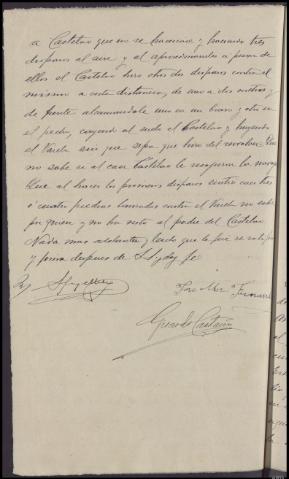 a Castelao que no se hacercara y haciendo tres
disparos al aire y al aproximandose a pesar de
ellos el Castelao hizo otros dos disparos contra el
mismo a corta distancia, de uno a dos metros y
de frente alcanzandole uno en un brazo y otro en
el pecho, cayendo al suelo el Castelao y huyendo
el Varela sin que sepa que hizo del revolver. Que
no sabe si al caer Castelao le
Que al hacer los primeros disparos sintio caer tres
ó cuatro piedras lanzadas contra el Varela no sabe
por quien y no ha visto al padre del Castelao
Nada mas adelanta, leido que le fue se ratifica
y firma despues de S.S. y doy fe
Jose Mª
Gerardo Castaño